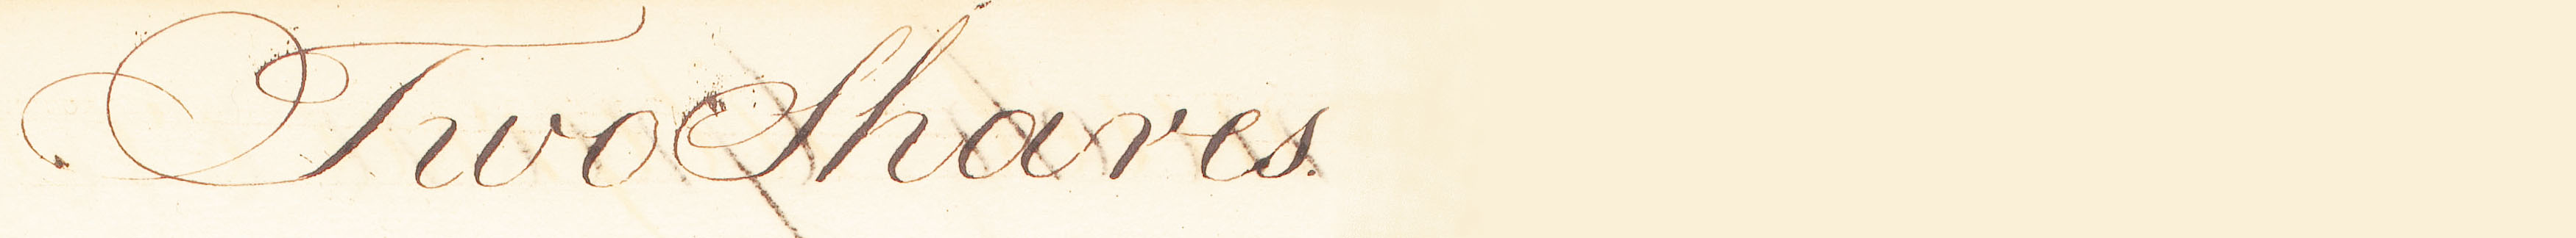 Two Shares.